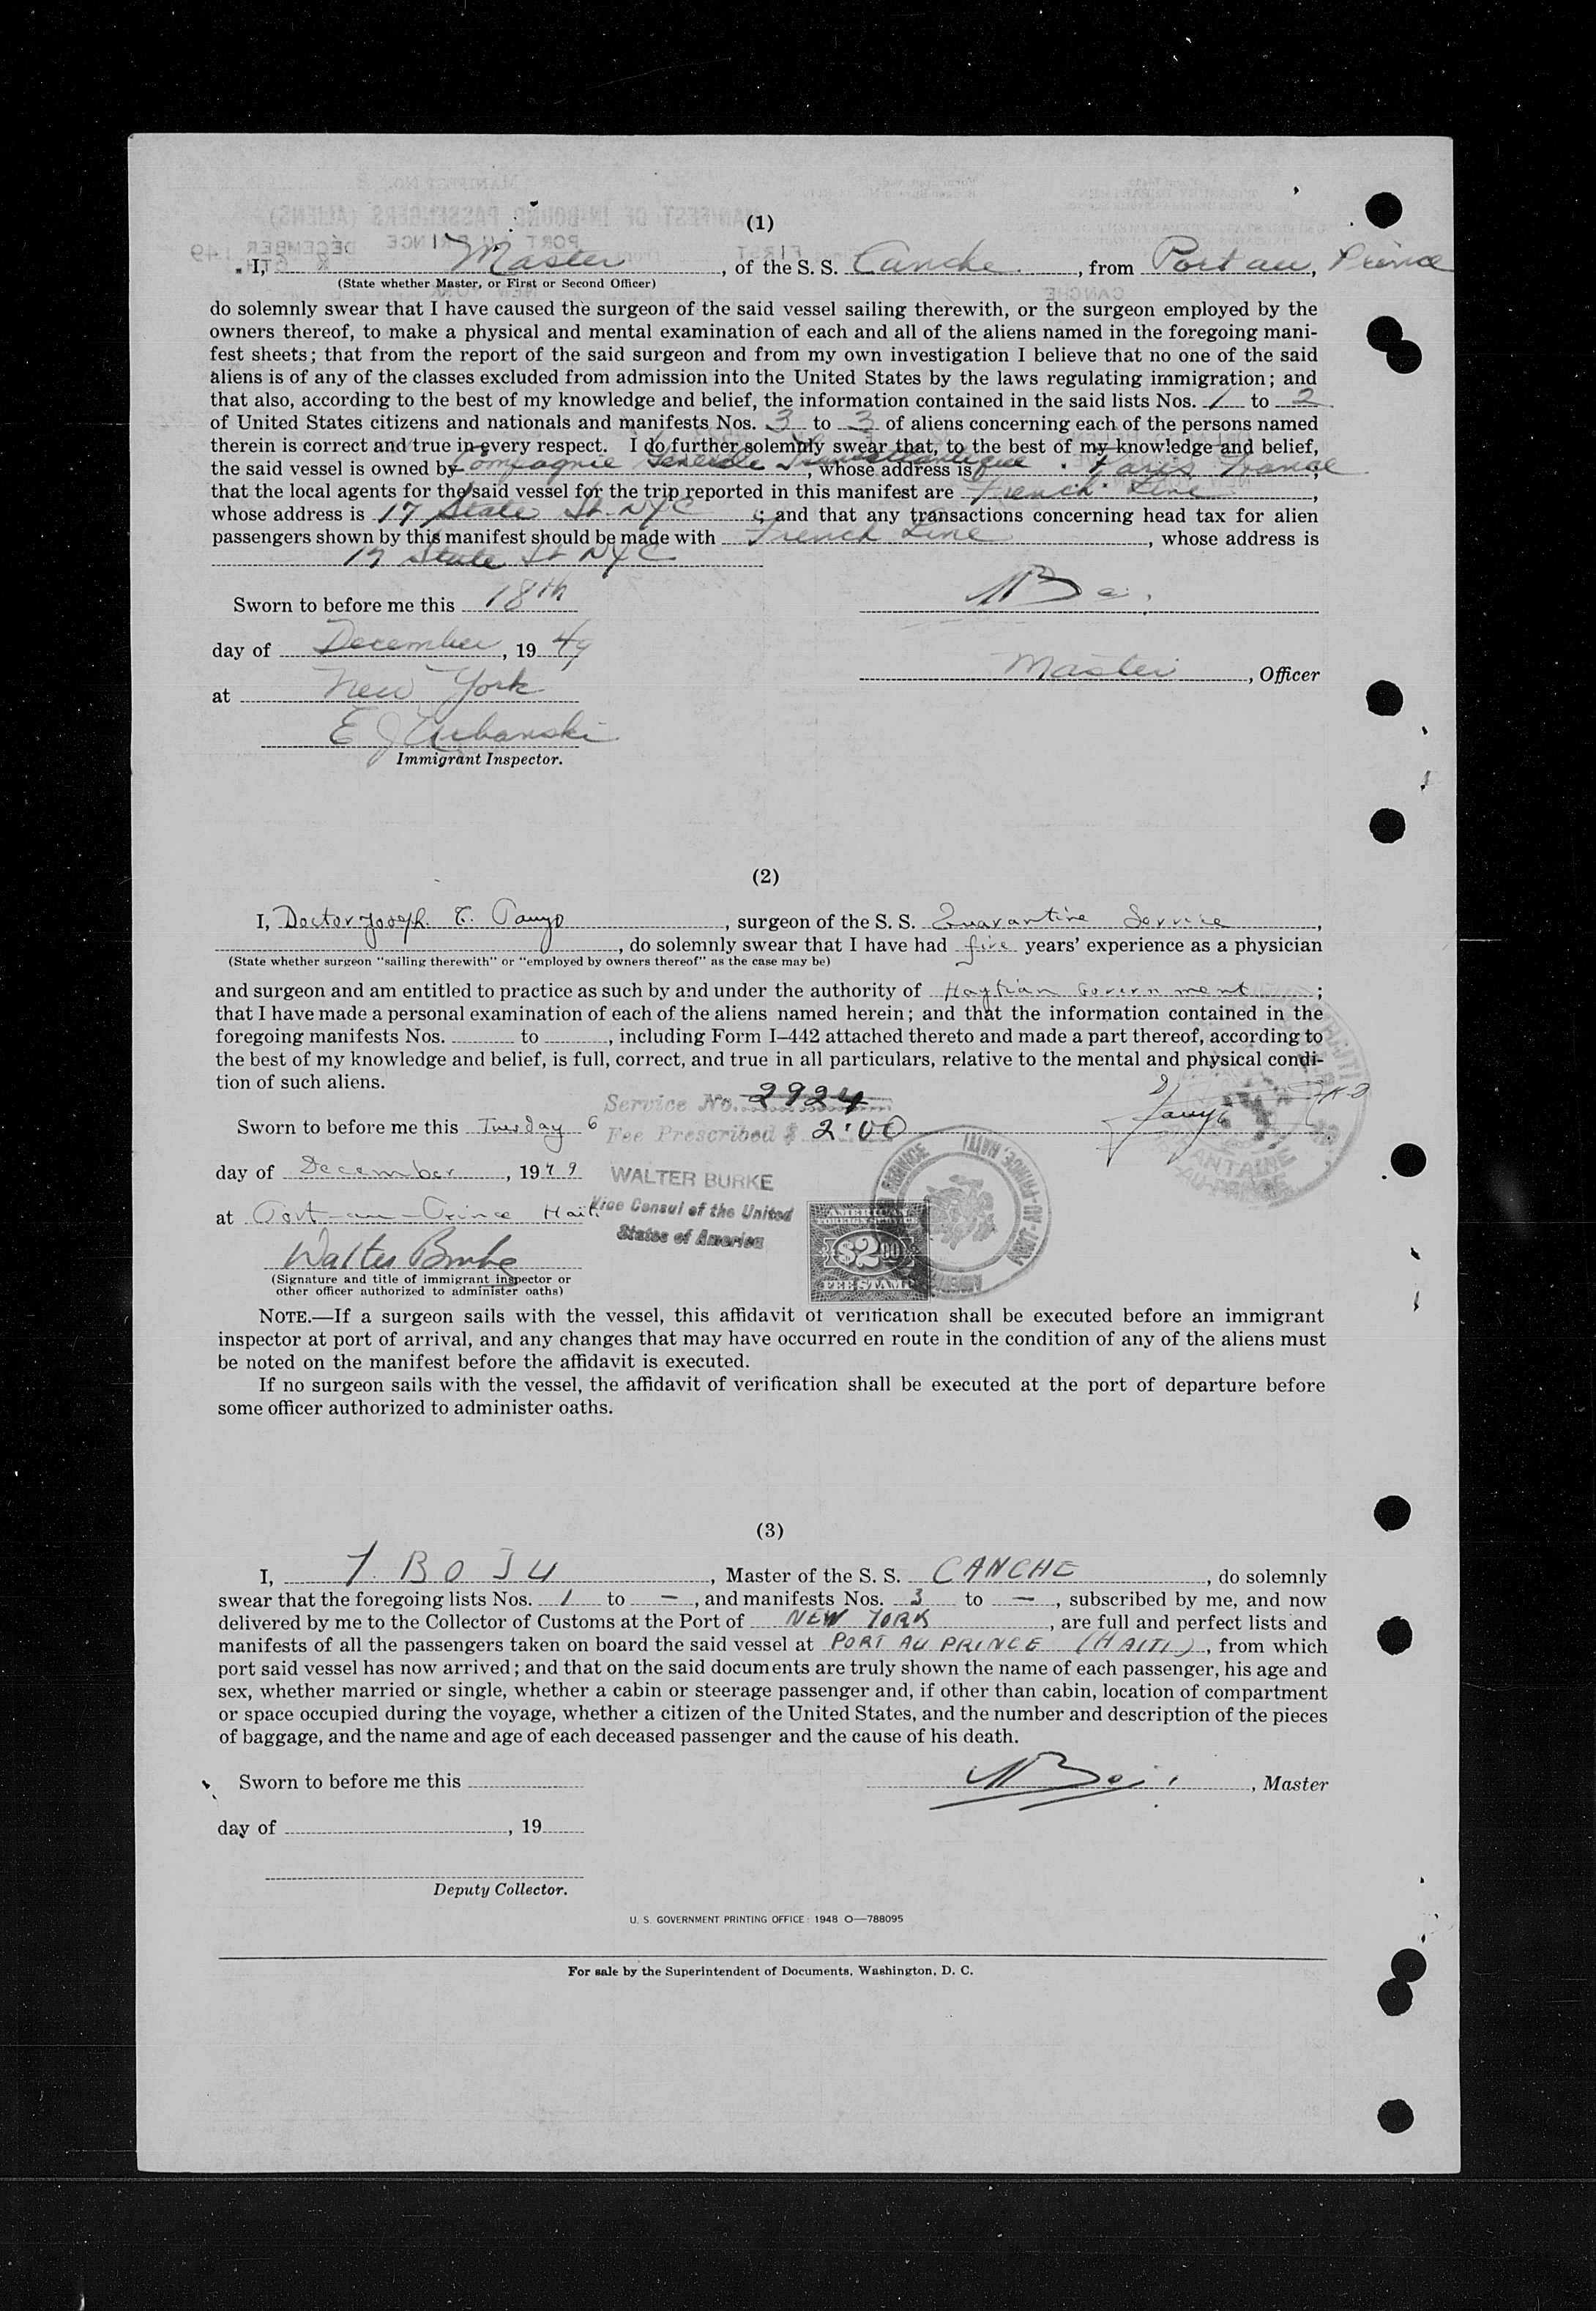 (1)
I, Master, of the S. S. Canche, from Port au, Prince
(State whether Master, or First or Second Officer)
do solemnly swear that I have caused the surgeon of the said vessel sailing therewith, or the surgeon employed by the
owners thereof, to make a physical and mental examination of each and all of the aliens named in the foregoing mani-
fest sheets; that from the report of the said surgeon and from my own investigation I believe that no one of the said
aliens is of any of the classes excluded from admission into the United States by the laws regulating immigration; and
that also, according to the best of my knowledge and belief, the information contained in the said lists Nos. 1 to 2
of United States citizens and nationals and manifests Nos. 3 to 3 of aliens concerning each of the persons named
therein is correct and true in every respect. I do further solemnly swear that, to the best of my knowledge and belief,
the said vessel is owned by Compagnie Generale Transatlantique, whose address is Paris France,
that the local agents for the said vessel for the trip reported in this manifest are French Line,
whose address is 17 State St. NYC; and that any transactions concerning head tax for alien
passengers shown by this manifest should be made with French Line, whose address is
17 State St NYC
Sworn to before me this 18th
day of December, 19 49
Master, Officer
at New York
E J Urbanski
Immigrant Inspector.
(2)
I, Doctor Joseph, surgeon of the S. S. Quarantine Service,
, do solemnly swear that I have had five years' experience as a physician
(State whether surgeon "sailing therewith" or "employed by owners thereof" as the case may be)
and surgeon and am entitled to practice as such by and under the authority of Haytian Government;
that I have made a personal examination of each of the aliens named herein; and that the information contained in the
foregoing manifests Nos. to , including Form I–442 attached thereto and made a part thereof, according to
the best of my knowledge and belief, is full, correct, and true in all particulars, relative to the mental and physical condi-
tion of such aliens.
Service No. 2924
Sworn to before me this Tuesday 6
Fee Prescribed $ 2.00
day of December, 1949
WALTER BURKE
at Port-au-Prince Haiti
Vice Consul of the United
States of America
AMERICAN
FOREIGN SERVICE
$2.00
FEE STAMP
Walter Burke
(Signature and title of immigrant inspector or
other officer authorized to administer oaths)
NOTE.—If a surgeon sails with the vessel, this affidavit of verification shall be executed before an immigrant
inspector at port of arrival, and any changes that may have occurred en route in the condition of any of the aliens must
be noted on the manifest before the affidavit is executed.
If no surgeon sails with the vessel, the affidavit of verification shall be executed at the port of departure before
some officer authorized to administer oaths.
(3)
I, Y. BOJU, Master of the S. S. CANCHE, do solemnly
swear that the foregoing lists Nos. 1 to —, and manifests Nos. 3 to —, subscribed by me, and now
delivered by me to the Collector of Customs at the Port of NEW YORK, are full and perfect lists and
manifests of all the passengers taken on board the said vessel at PORT AU PRINCE (HAITI), from which
port said vessel has now arrived; and that on the said documents are truly shown the name of each passenger, his age and
sex, whether married or single, whether a cabin or steerage passenger and, if other than cabin, location of compartment
or space occupied during the voyage, whether a citizen of the United States, and the number and description of the pieces
of baggage, and the name and age of each deceased passenger and the cause of his death.
Sworn to before me this
, Master
day of , 19
Deputy Collector.
U. S. GOVERNMENT PRINTING OFFICE: 1948 O—788095
For sale by the Superintendent of Documents, Washington, D. C.